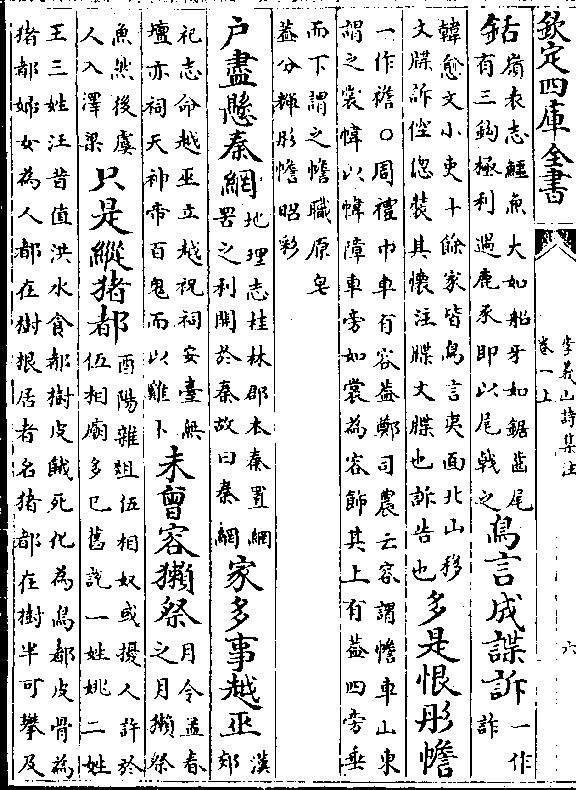 欽定四庫全書
李義山詩集注
卷一上
六
鈷
嶺表志鱷魚大如船牙如鋸齒尾
有三鈎極利遇鹿豕即以尾戟之
鳥言成諜訴
一作
詐
韓愈文小吏十餘家皆鳥言夷面北山移
文牒訴倥偬裝其懷注牒文牒也訴告也
多是恨彤幨
一作襜○周禮巾車有容蓋鄭司農云容謂幨車山東
謂之裳幃以幃障車旁如裳為容飾其上有蓋四旁垂
而下謂之幨職原皂
蓋分輝彤幨昭彩
户盡懸秦網
地理志桂林郡本秦置網
罟之利開於秦故曰秦網
家多事越巫
漢
郊
祀志命越巫立越祝祠安臺無
壇亦祠天神帝百鬼而以雞卜
未曾容獺祭
月令孟春
之月獺祭
魚然後虞
人入澤梁
只是縱猪都
酉陽雜俎伍相奴或擾人許於
伍相廟多已舊說一姓姚二姓
王三姓汪昔值洪水食都樹皮餓死化為鳥都皮骨為
猪都婦女為人都在樹根居者名猪都在樹半可攀及